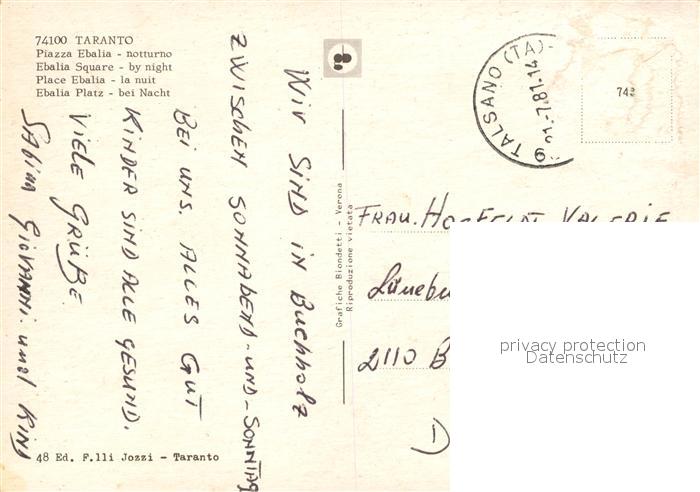 74100 TARANTO
Piazza Ebalia - notturno
Ebalia Square - by night
Place Ebalia - la nuit
Ebalia Platz - bei Nacht
Wir SIND IN Buchholz
ZWISCHEN SONNABEND-UND-SONNTAG
BEI UNS. ALLES GUT
KINDER SIND ALLE GESUND.
VIELE GRÜßE.
SABINA GIOVANNI. und KIND
48 Ed. F.lli Jozzi - Taranto
Grafiche Biondetti - Verona
Riproduzione vietata
TALSANO (TA)
-7.81-14
743
FRAU. VALERIE
Lünebu
2110 B
D
privacy protection
Datenschutz